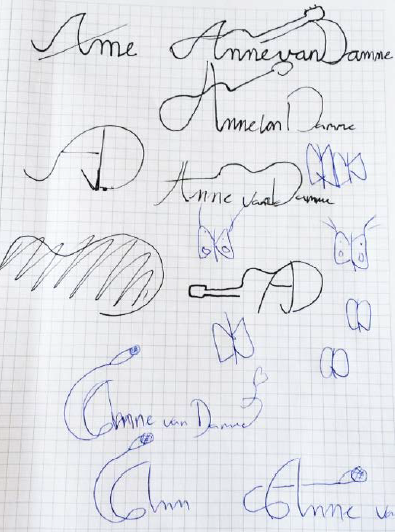 Anne
Anne van Damme
Anne van Damme
AD
Anne van Damme
AD
Anne van Damme
Ann
Anne va